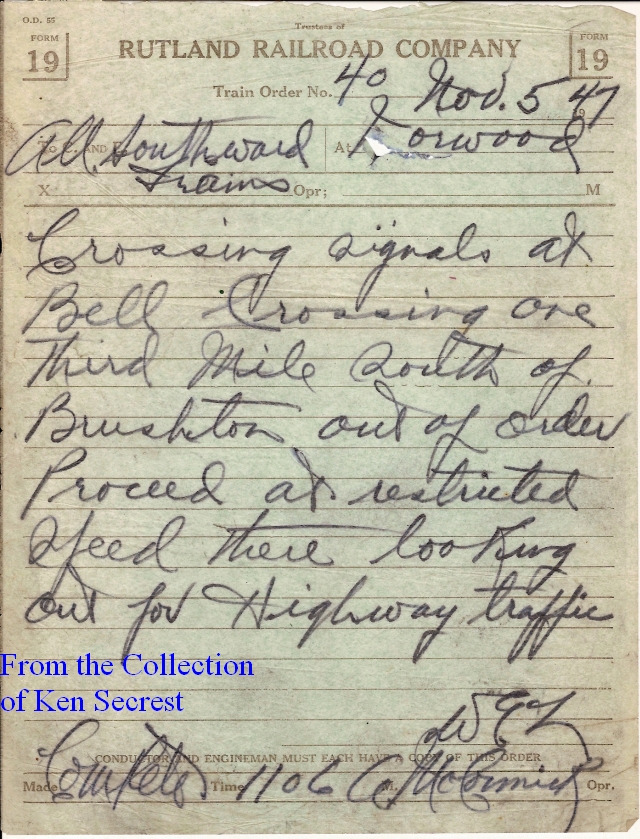 O.D. 55
Trustees of
FORM 19
RUTLAND RAILROAD COMPANY
FORM 19
Train Order No. 40 Nov. 5 1947
To C. AND E. All Southward At Norwood
Trains
X Opr; M
Crossing signals at
Bell Crossing one
Third Mile South of
Brushton out of order
Proceed at restricted
Speed there looking
out for Highway traffic
From the Collection
of Ken Secrest
CONDUCTOR AND ENGINEMAN MUST EACH HAVE A COPY OF THIS ORDER
Made Complete Time 1106 M. McCormick Opr.